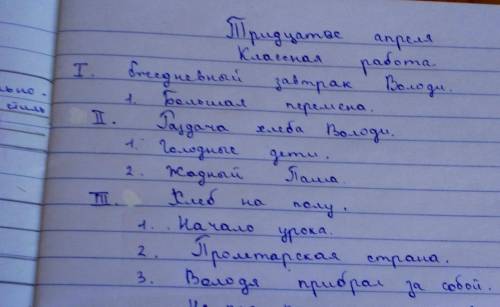 Тридцатое апреля
Классная работа.
I. Ежедневный завтрак Володи.
1. Большая перемена.
II. Раздача хлеба Володи.
1. Голодные дети.
2. Жадный Паша.
III. Хлеб на полу.
1. Начало урока.
2. Пролетарская страна.
3. Володя прибрал за собой.